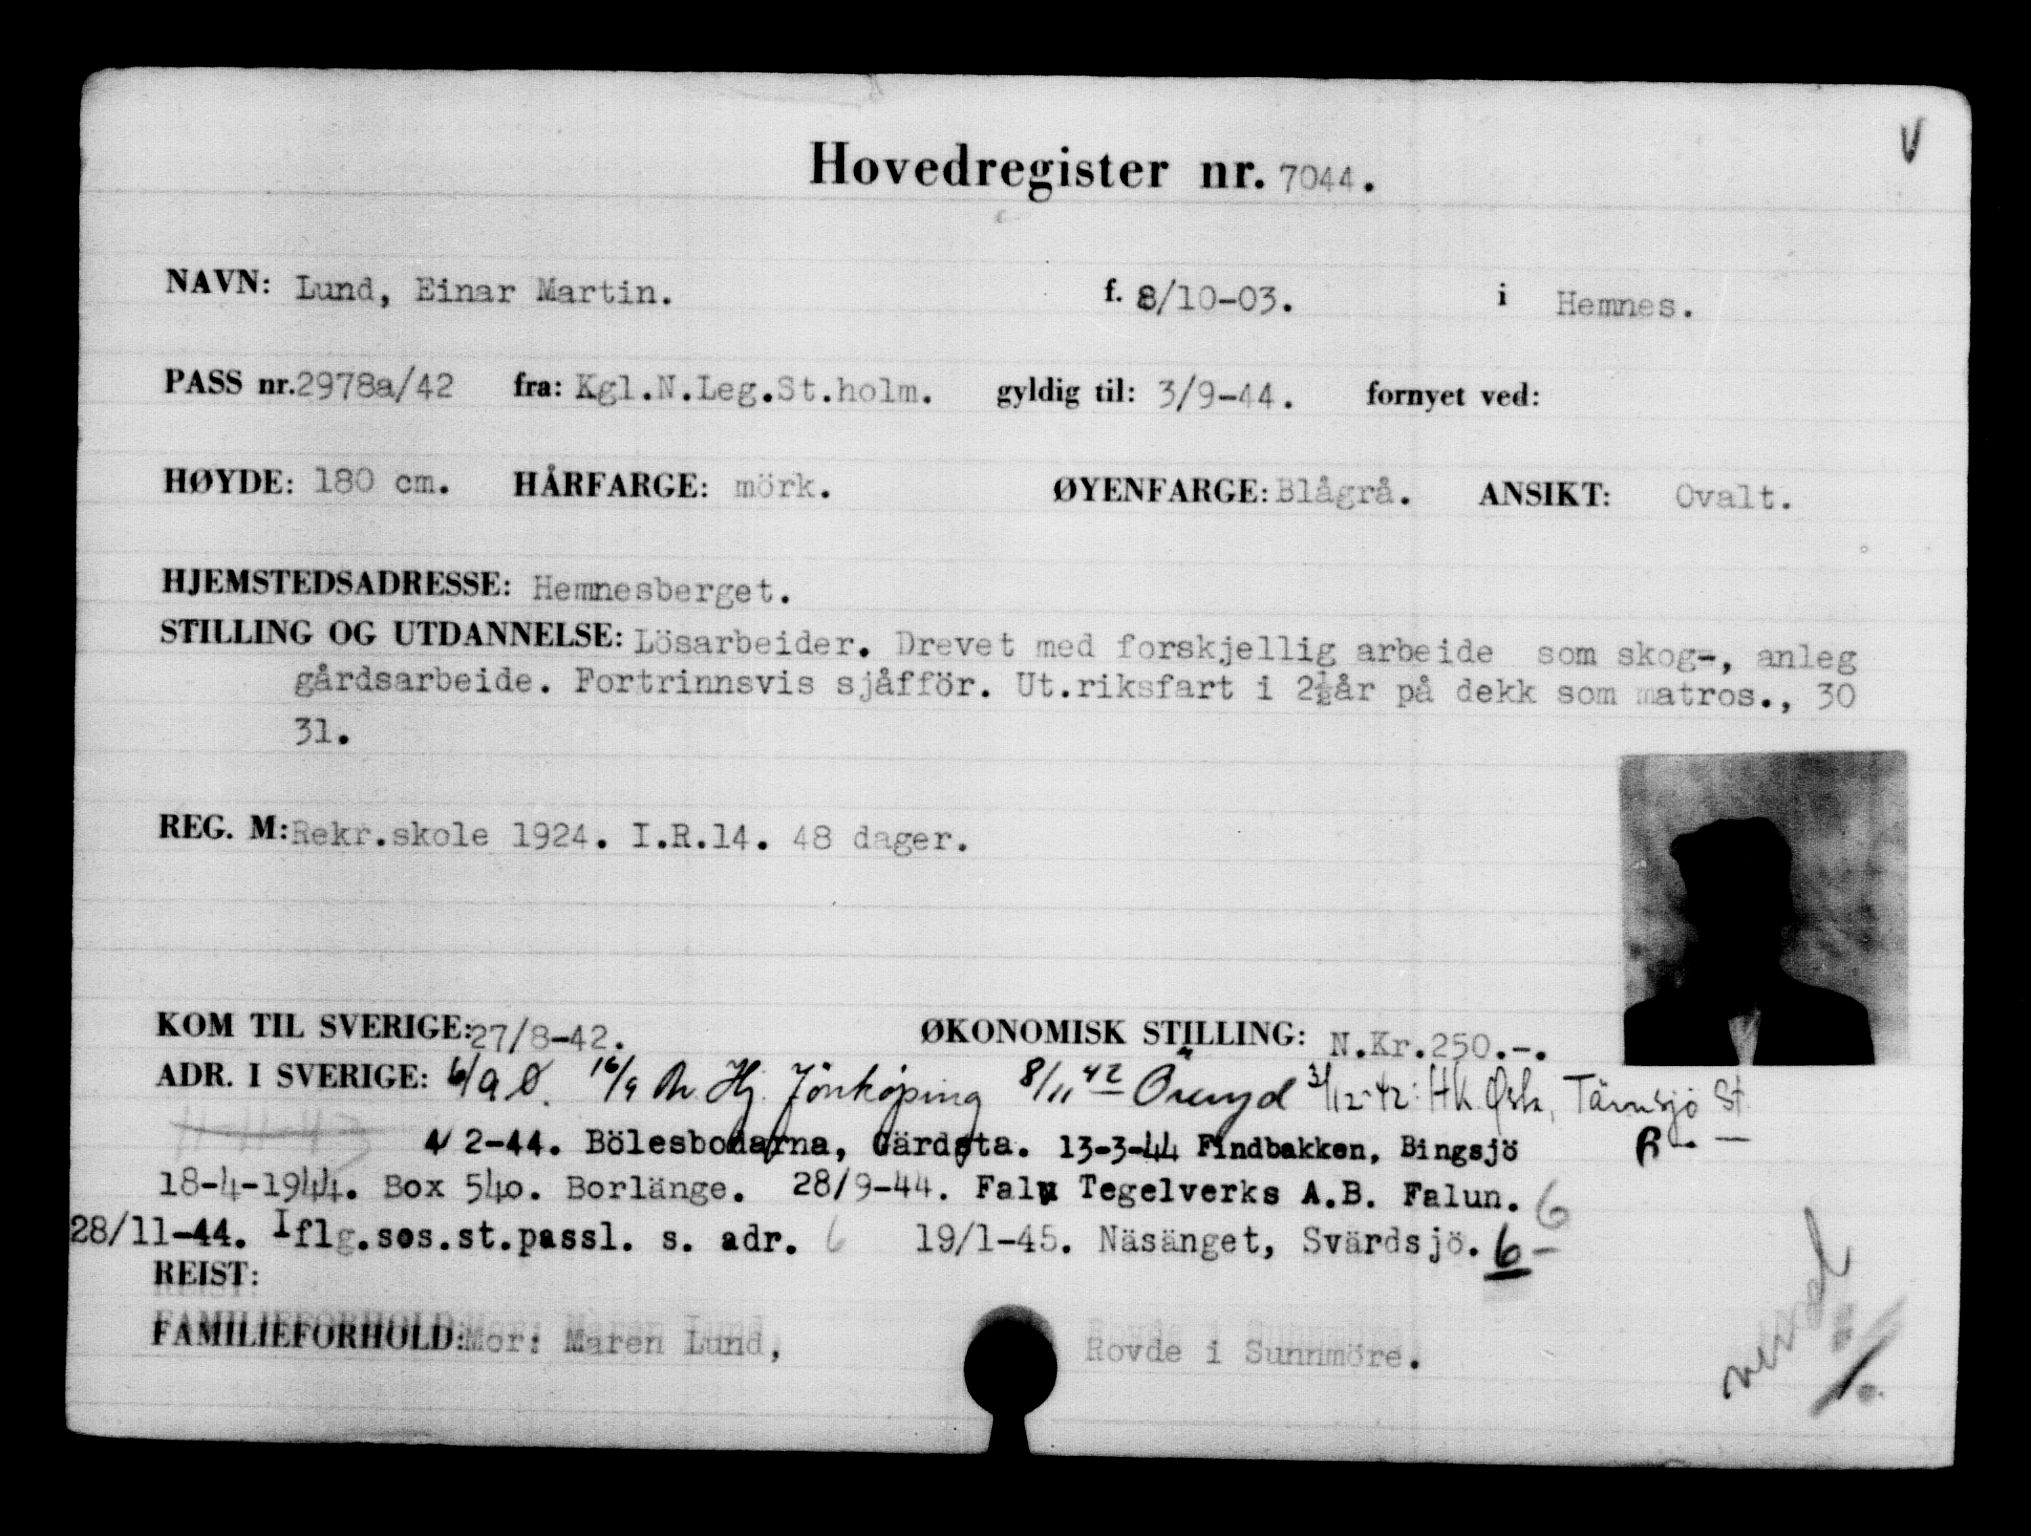 V
Hovedregister nr. 7044.
NAVN: Lund, Einar Martin. f. 8/10-03. i Hemnes.
PASS nr. 2978a/42 fra: Kgl.N.Leg.St.holm. gyldig til: 3/9-44. fornyet ved:
HØYDE: 180 cm. HÅRFARGE: mörk. ØYENFARGE: Blågrå. ANSIKT: Ovalt.
HJEMSTEDSADRESSE: Hemnesberget.
STILLING OG UTDANNELSE: Lösarbeider. Drevet med forskjellig arbeide som skog-, anleg
gårdsarbeide. Fortrinnsvis sjåfför. Ut.riksfart i 2½år på dekk som matros., 30
31.
REG. M: Rekr.skole 1924. I.R.14. 48 dager.
KOM TIL SVERIGE: 27/8-42. ØKONOMISK STILLING: N.Kr.250.-.
ADR. I SVERIGE: 6/9 Ø. 16/9 Hj. Jönköping 8/11 42 3/12-42: HK. Tärnsjö St.
11-11-43 2-44. Bölesbodarna, Gärdsta. 13-3-44 Findbakken, Bingsjö R.-
18-4-1944. Box 540. Borlänge. 28/9-44. Falu Tegelverks A.B. Falun. 6
28/11-44. Iflg.sos.st.passl. s. adr. 6 19/1-45. Näsänget, Svärdsjö. 6-
REIST:
FAMILIEFORHOLD: Mor: Maren Lund, Rovde i Sunnmöre.